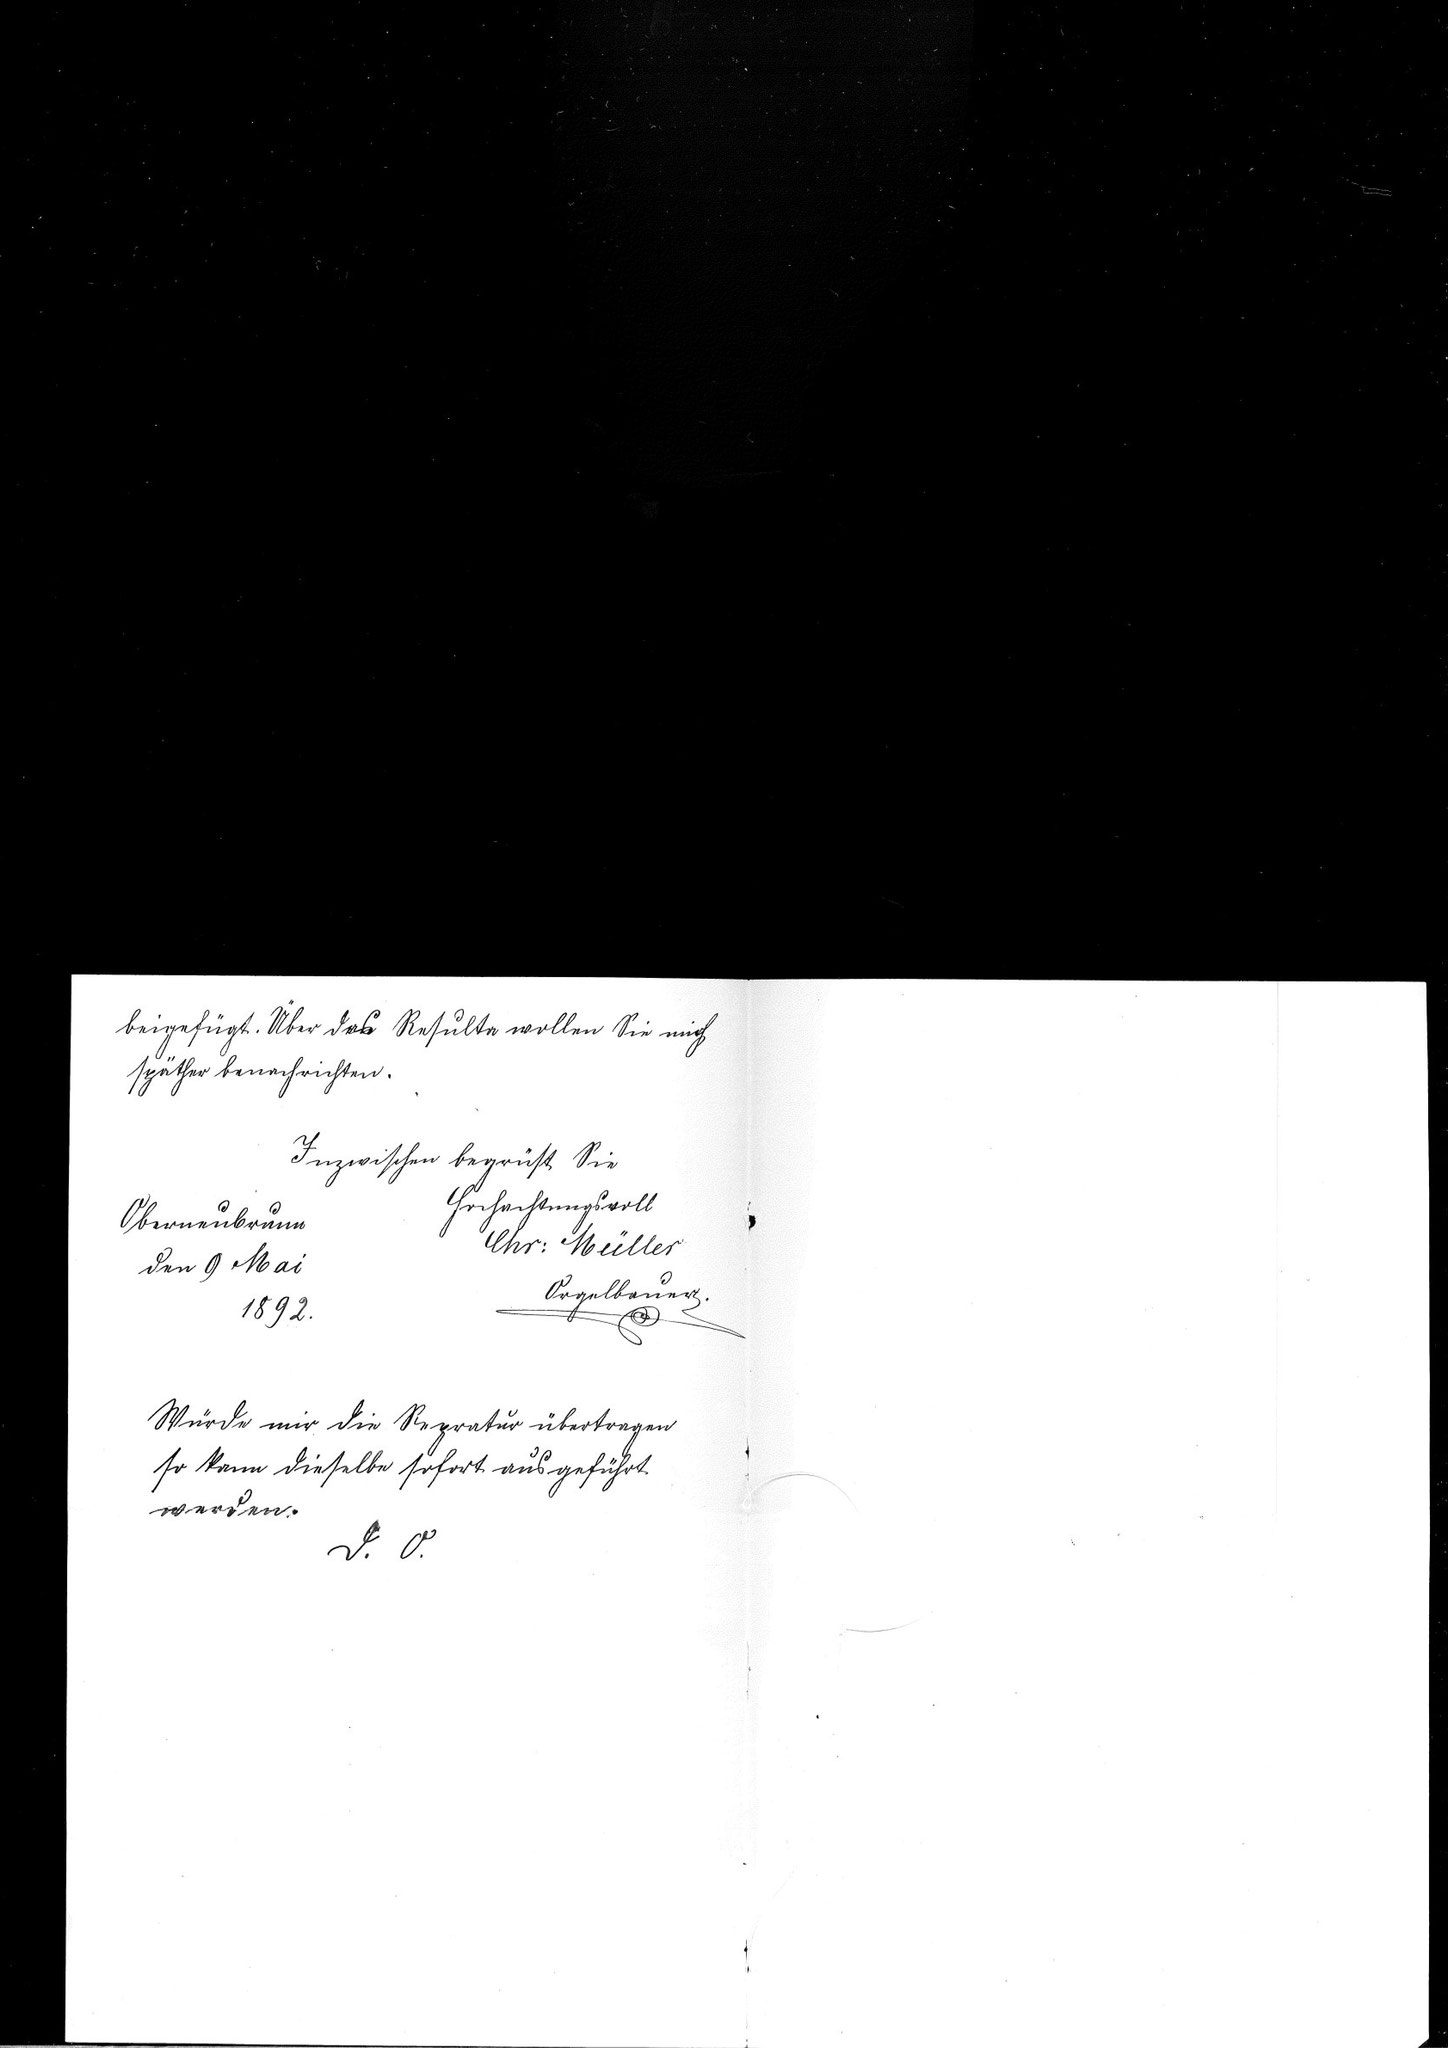 beigefügt. Über das Resulta wollen Sie mich
späther benachrichten.
Inzwischen begrüst Sie
Hochachtungsvoll
Chr: Müller
Orgelbauer.
Oberneubrunn
den 9 Mai
1892.
Würde mir die Repratur übertragen
so kann dieselbe sofort ausgeführt
werden.
D. O.